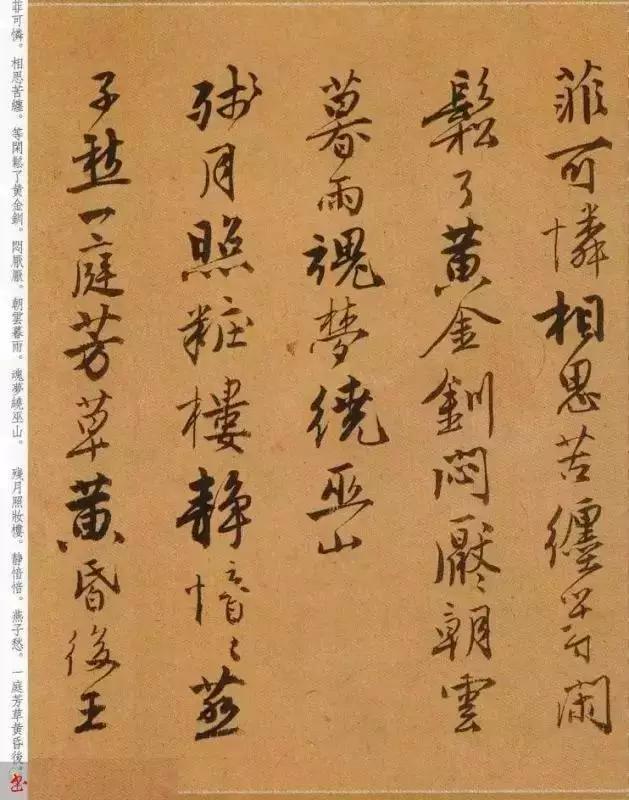 菲可憐相思苦纏等閑
鬆了黃金釧悶厭〻朝雲
暮雨魂夢繞巫山
殘月照粧樓靜愔〻燕
子愁一庭芳草黃昏後王
菲可憐。相思苦纏。等閑鬆了黃金釧。悶厭厭。朝雲暮雨。魂夢繞巫山。　殘月照妝樓。靜愔愔。燕子愁。一庭芳草黃昏後